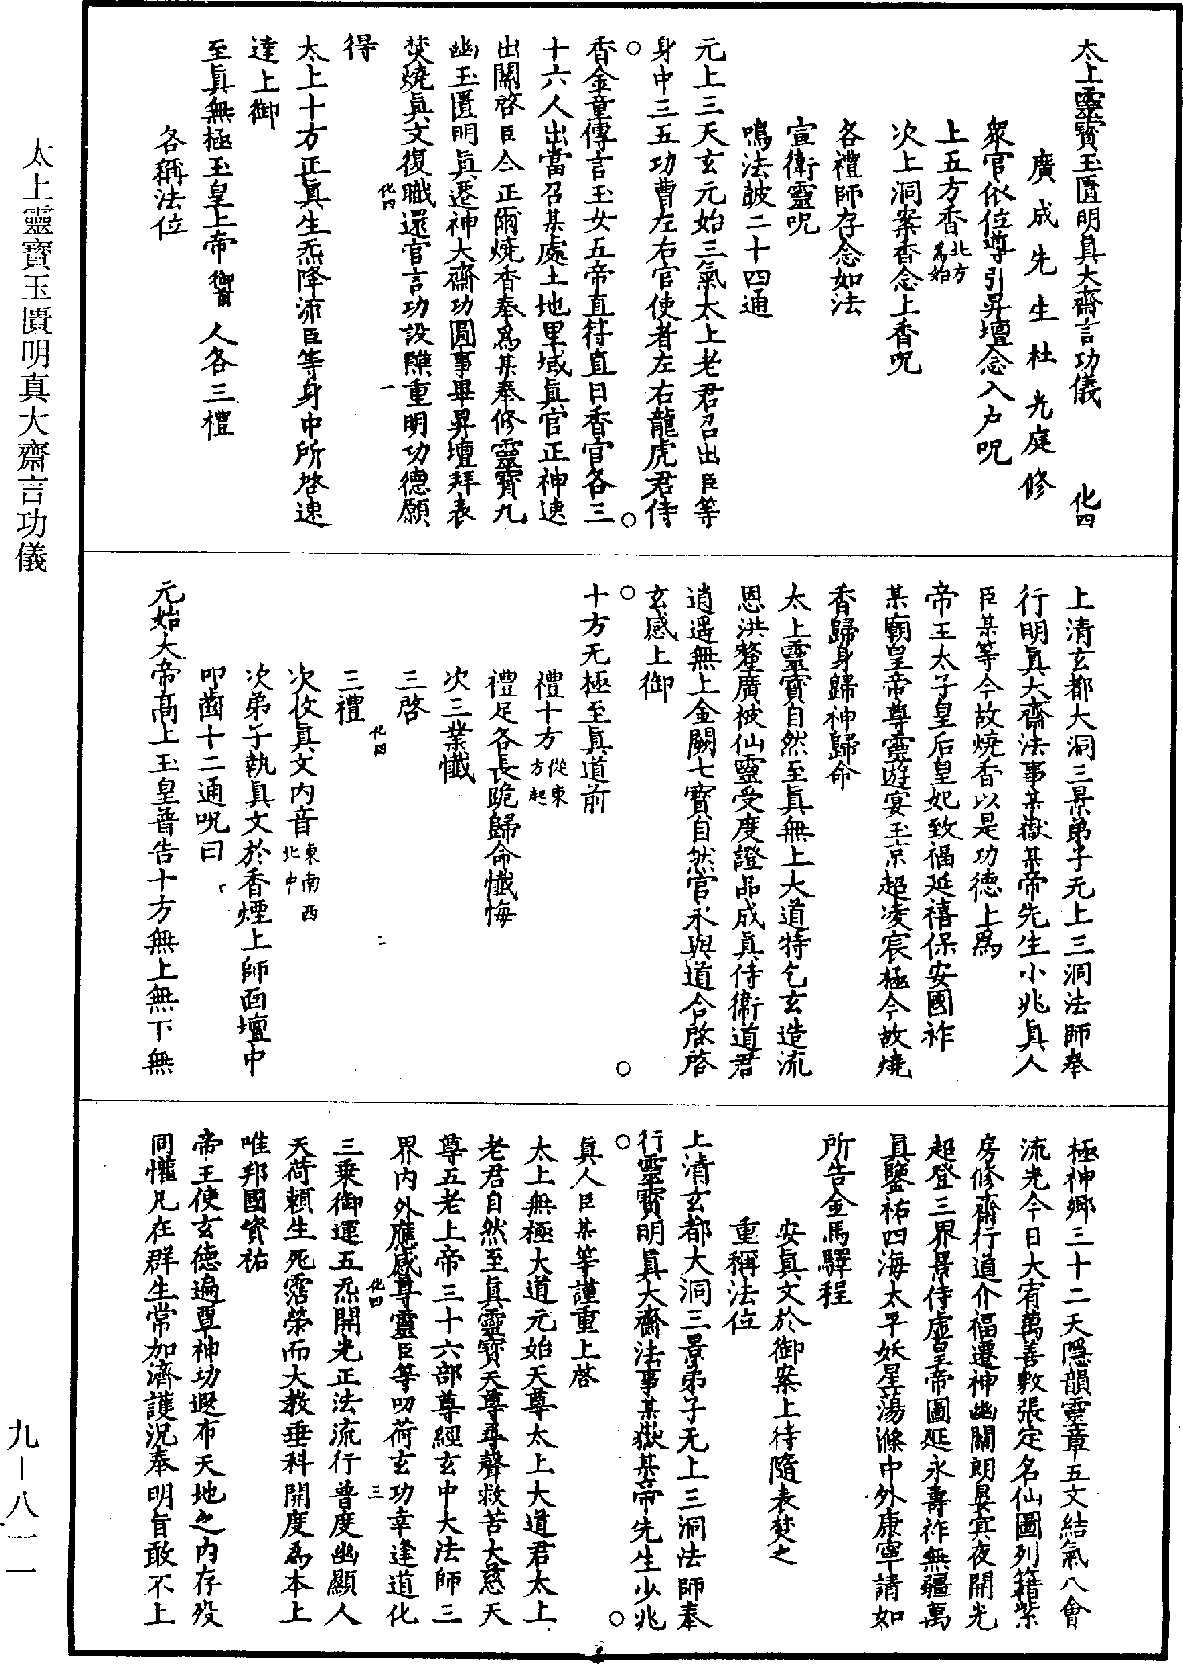 太上靈寶玉匱明真大齋言功儀 化四
廣成先生杜光庭修
衆官依位導引昇壇念入户呪
上五方香北方爲始
次上洞案香念上香呪
各禮師存念如法
宣衛靈呪
鳴法鼓二十四通
元上三天玄元始三氣太上老君召出臣等
身中三五功曹左右官使者左右龍虎君侍
香金童傳言玉女五帝直符直日香官各三
十六人出當召某處土地里域眞官正神速
出關啓臣今正爾燒香奉爲某奉修靈寶九
幽玉匱明眞遷神大齋功圓事畢昇壇拜表
焚燒眞文復職還官言功設醮重明功德願
化四 一
得
太上十方正眞生炁降流臣等身中所啓速
達上御
至眞無極玉皇上帝御前 人各三禮
各稱法位
上清玄都大洞三景弟子无上三洞法師奉
行明眞大齋法事某嶽某帝先生小兆眞人
臣某等今故燒香以是功德上爲
帝王太子皇后皇妃致福延禧保安國祚
某廟皇帝尊靈遊宴玉京超凌宸極今故燒
香歸身歸神歸命
太上靈寶自然至眞無上大道特乞玄造流
恩洪釐廣被仙靈受度證品成眞侍衛道君
逍遥無上金闕七寶自然宮永與道合啓啓
玄感上御
十方无極至眞道前
禮十方從東方起
禮足各長跪歸命懺悔
次三業懺
三啓
三禮
化四 二
次收眞文内音東南西北中
次弟子執眞文於香煙上師面壇中
叩齒十二通呪曰
元始大帝高上玉皇普告十方無上無下無
極神鄉三十二天隱韻靈章五文結氣八會
流光今日大宥萬善敷張定名仙圖列籍紫
房修齋行道介福遷神幽關朗晏冥夜開光
超登三界景侍虛皇帝圖延永壽祚無疆萬
眞鑒祐四海太平妖星蕩滌中外康寧請如
所告金馬驛程
安眞文於御案上待隨表焚之
重稱法位
上清玄都大洞三景弟子无上三洞法師奉
行靈寶明眞大齋法事某嶽某帝先生少兆
眞人臣某等謹重上啓
太上無極大道元始天尊太上大道君太上
老君自然至眞靈寶天尊尋聲救苦大慈天
尊五老上帝三十六部尊經玄中大法師三
界内外應感尊靈臣等叨荷玄功幸逢道化
化四 三
三乘御運五炁開光正法流行普度幽顯人
天荷賴生死霑榮而大教垂科開度爲本上
唯邦國資祐
帝王使玄德遍覃神功遐布天地之内存殁
同懽凡在群生常加濟護況奉明旨敢不上
太上靈寶玉匱明真大齋言功儀
九—八一一